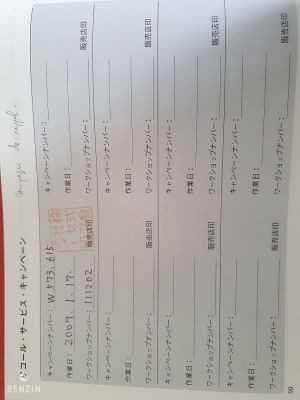 リコール・サービス・キャンペーン
campagne de rappel
キャンペーンナンバー：W573, 615
作業日：2007. 1. 17.
ワークショップナンバー：111202. 販売店印
キャンペーンナンバー：
作業日：
ワークショップナンバー： 販売店印
キャンペーンナンバー：
作業日：
ワークショップナンバー： 販売店印
キャンペーンナンバー：
作業日：
ワークショップナンバー： 販売店印
キャンペーンナンバー：
作業日：
ワークショップナンバー： 販売店印
キャンペーンナンバー：
作業日：
ワークショップナンバー： 販売店印
キャンペーンナンバー：
作業日：
ワークショップナンバー： 販売店印
キャンペーンナンバー：
作業日：
ワークショップナンバー： 販売店印
BENZIN